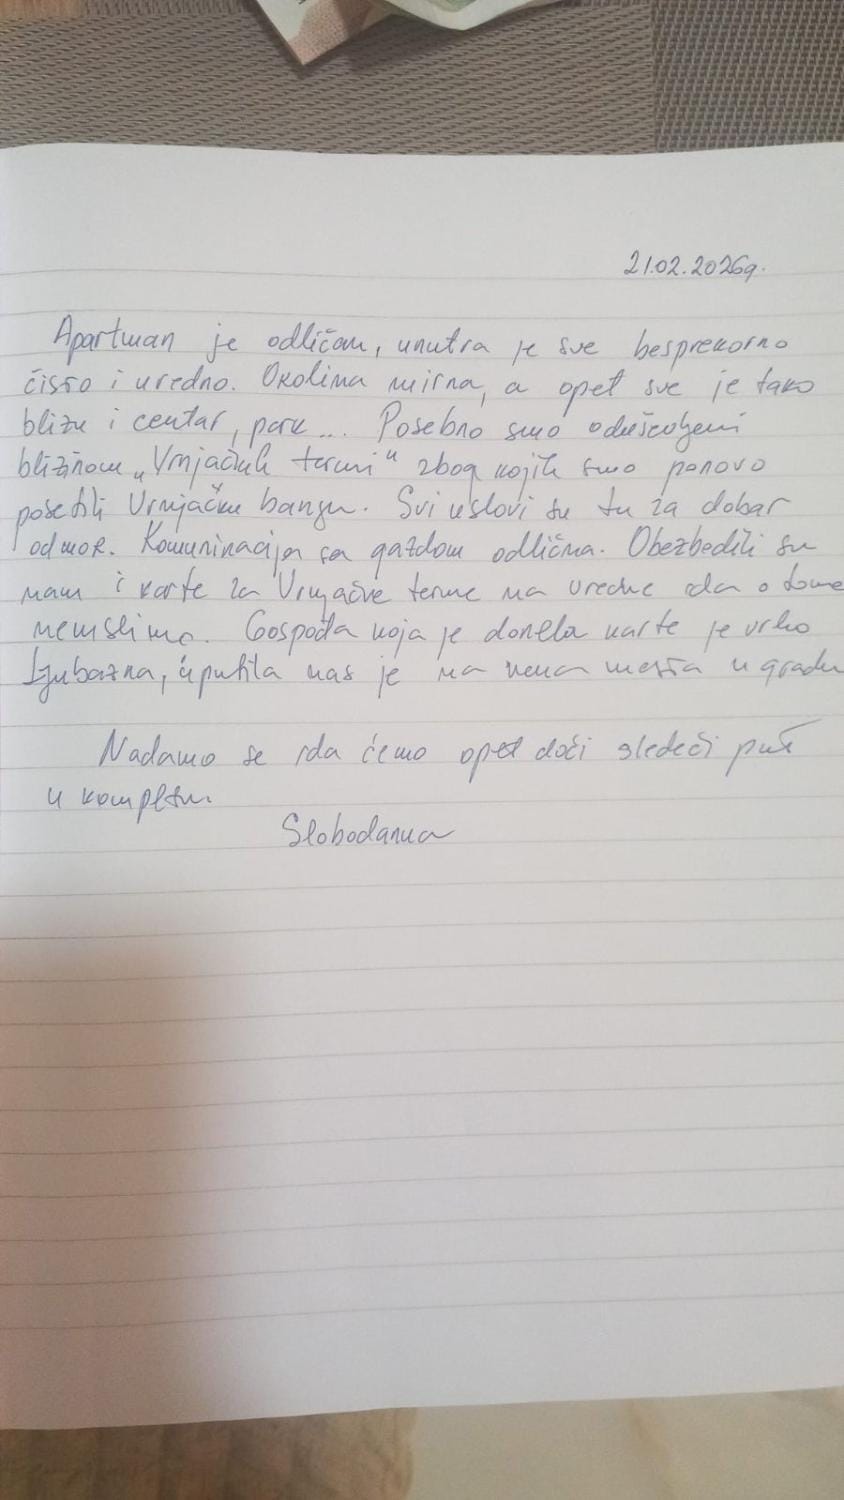 21.02.2026g.
Apartman je odličan, unutra je sve besprekorno
čisto i uredno. Okolina mirna, a opet sve je tako
blizu i centar, park... Posebno smo oduševljeni
blizinom „Vrnjačkih termi“ zbog kojih smo ponovo
posetili Vrnjačku banju. Svi uslovi su tu za dobar
odmor. Komunikacija sa gazdom odlična. Obezbedili su
nam i karte za Vrnjačke terme na vreme da o tome
nemslimo. Gospođa koja je donela karte je vrlo
ljubazna, uputila nas je na neka mesta u gradu
Nadamo se da ćemo opet doći sledeći put
u kompletu.
Slobodanka